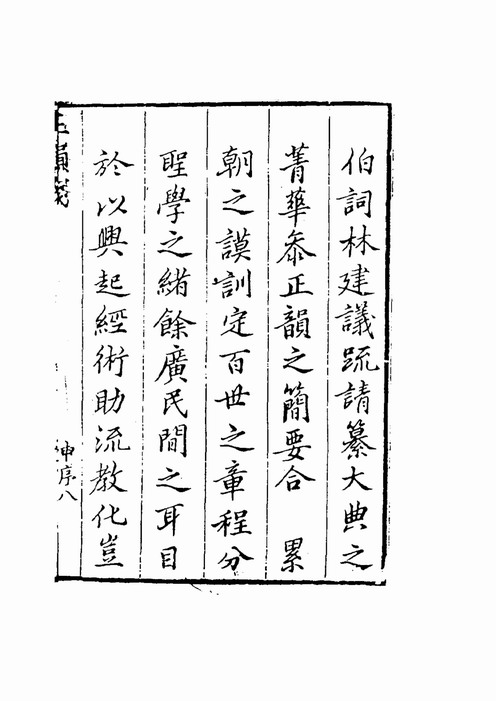 伯詞林建議疏請纂大典之
菁華叅正韻之簡要合　累
朝之謨訓定百世之章程分
聖學之緒餘廣民間之耳目
於以興起經術助流教化豈
正韻箋
申序八